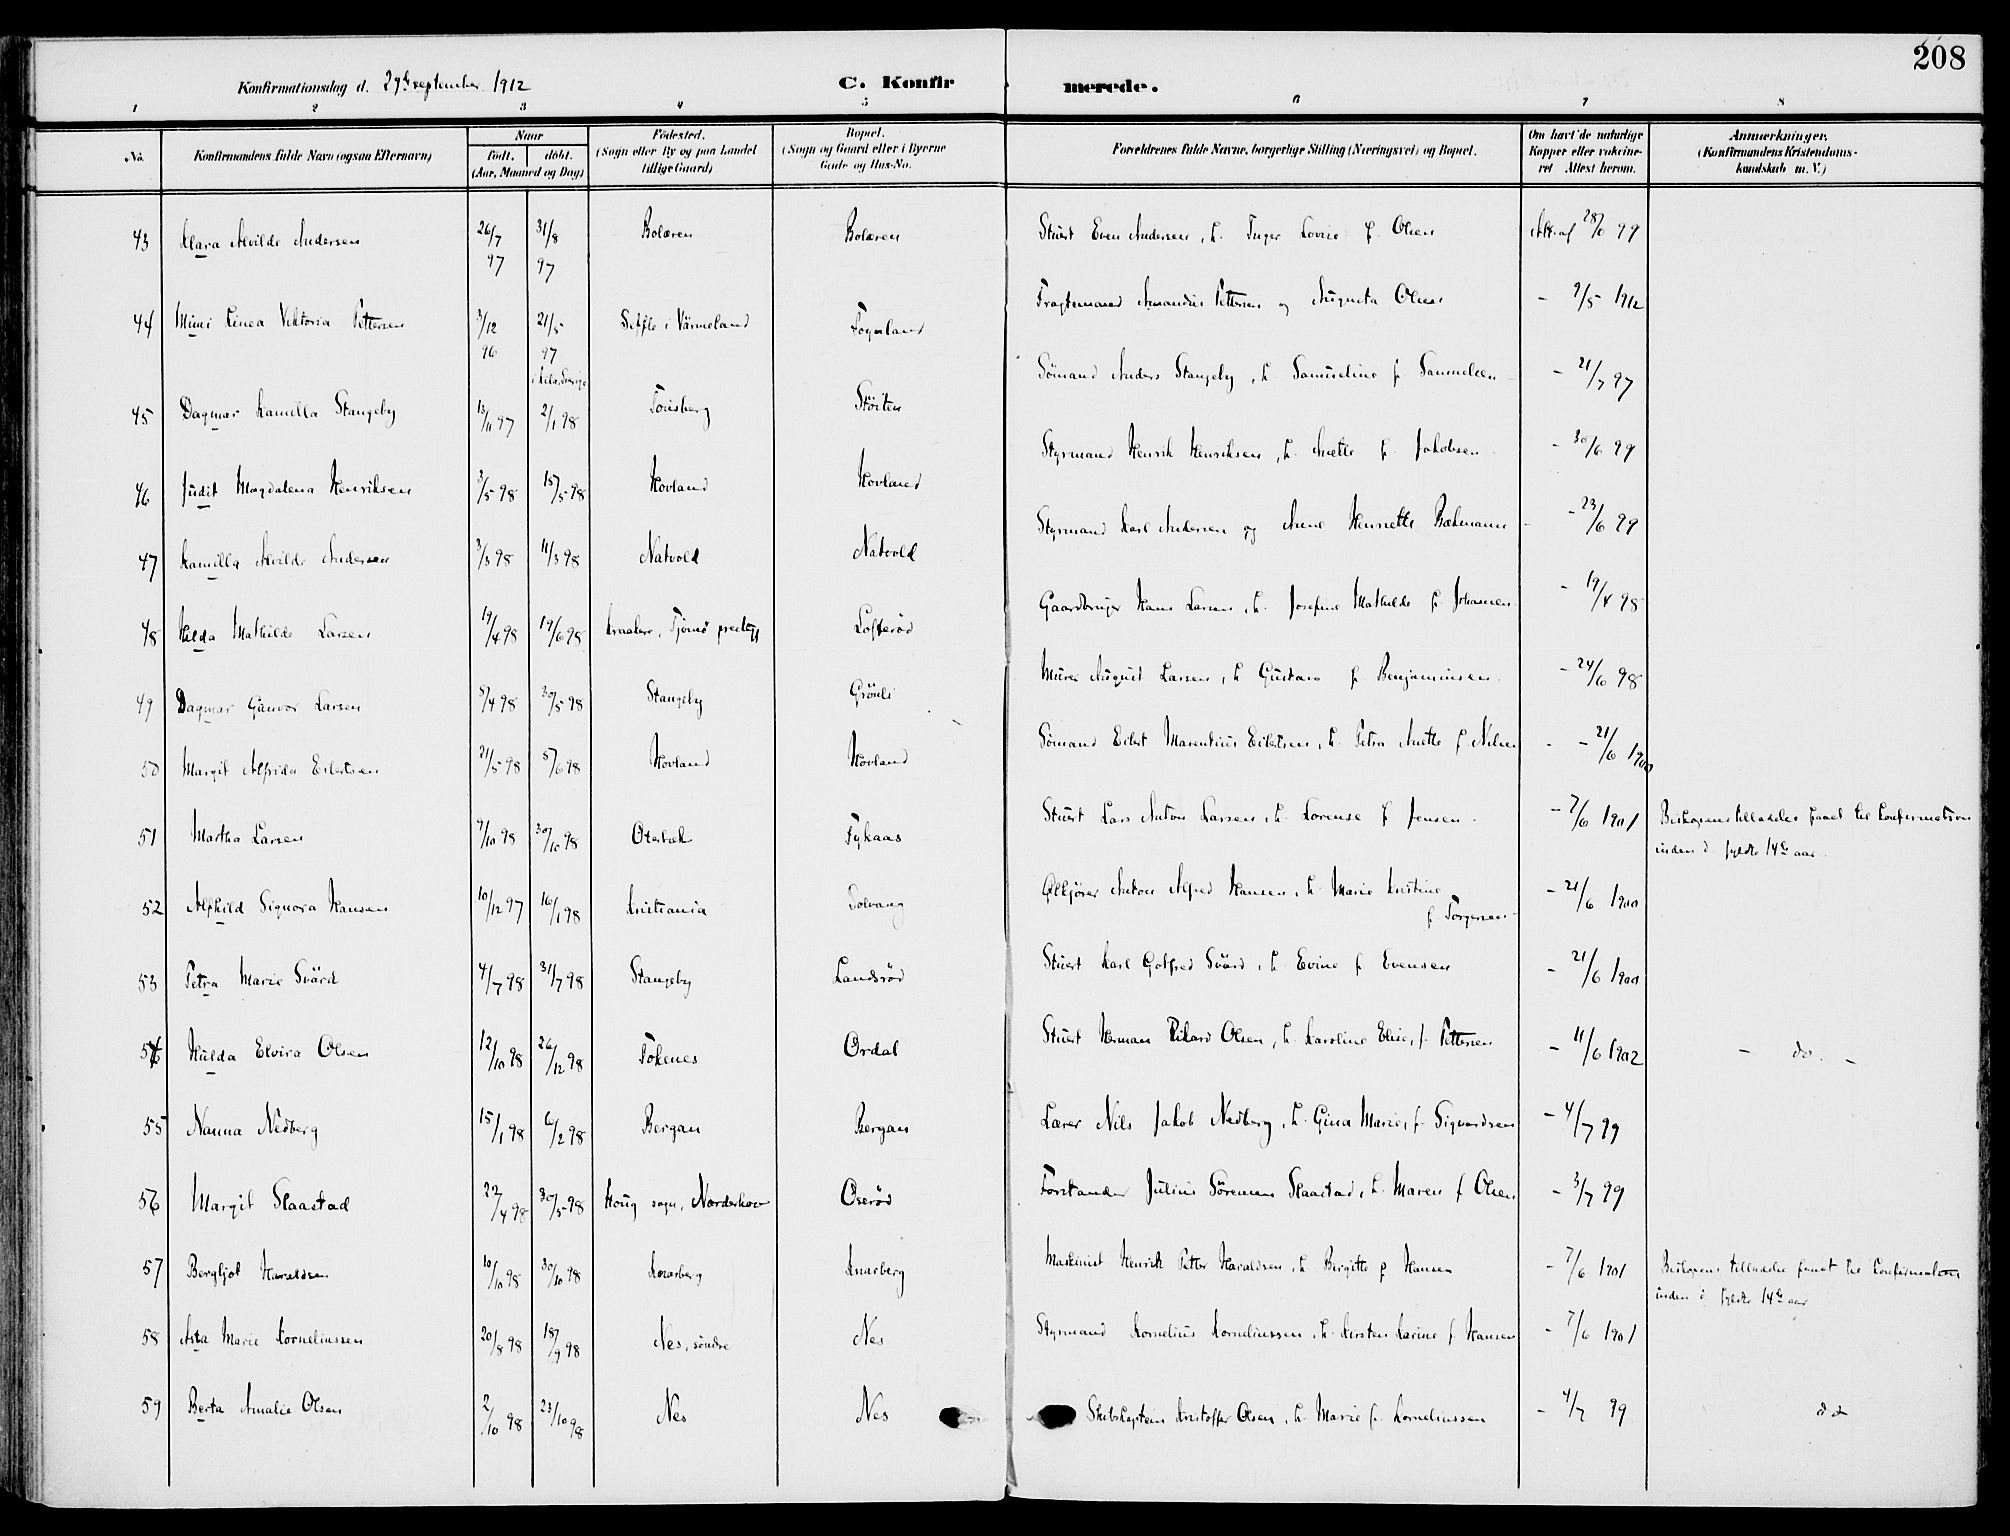 208
Konfirmationsdag d. 29de september 1912 C. Konfirmerede.
1 2 3 4 5 6 7 8
No. Konfirmandens fulde Navn (ogsaa Efternavn) Naar Födested. Bopæl. Forældrenes fulde Navne, borgerlige Stilling (Næringsvei) og Bopæl. Om havt de naturlige Anmærkninger.
født. döbt. (Sogn eller By og paa Landet (Sogn og Gaard eller i Byerne Kopper eller vakcine- (Konfirmandens Kristendoms-
(Aar, Maaned og Dag) tillige Gaard) Gade og Hus-No. ret Attest herom. kundskab m. V.)
43 Klara Alvilde Andersen 26/7 97 31/8 97 Bolæren Bolæren Stuert Even Andersen, h. Inger Lovise f. Olsen Att. af 28/6 99
44 Mimi Linea Viktoria Pettersen 3/12 96 21/5 97 Seffle i Värmeland Fogn­land Fragtemand Amandus Pettersen og Augusta Olsen - 9/5 1912
45 Dagmar Kamilla Stangeby 13/11 97 2/1 98 Tönsberg Stöiten Sömand Anders Stangeby, h. Samueline f. Samuelsen - 21/7 97
46 Judit Magdalena Henriksen 3/5 98 15/5 98 Hovland Hovland Styrmand Henrik Henriksen, h. Anette f. Jakobsen - 30/6 99
47 Kamilla Alvilde Andersen 3/3 98 11/3 98 Natvold Natvold Styrmand Karl Andersen og Anne Henriette Bækmann - 23/6 99
48 Hilda Mathilde Larsen 19/4 98 19/6 98 Kraakere, Tjömö prestegj Lofterød Gaardbruger Hans Larsen, h. Josefine Mathilde f. Johansen - 19/4 98
49 Dagmar Gunvor Larsen 5/4 98 30/5 98 Stangeby Grönli Murer August Larsen, h. Gustava f. Benjaminsen - 24/6 98
50 Margit Alfrida Eilertsen 21/5 98 5/6 98 Hovland Hovland Sömand Eilert Marentius Eilertsen, h. Petra Anette f. Nilsen - 21/6 1900
51 Martha Larsen 9/10 98 30/10 98 Oterbæk Fykaas Stuert Lars Anton Larsen, h. Lorense f. Jensen - 7/6 1901 Biskopens tilladelse faaet til konfirmation
inden d. fyldte 14de aar.
52 Alfhild Signora Hansen 10/12 97 16/1 98 Kristiania Solvang Anton Alfred Hansen, h. Marie Kristine - 21/6 1900
f. Torgersen
53 Petra Marie Svärd 4/7 98 31/7 98 Stangeby Landsröd Stuert Karl Gotfred Svärd, h. Evine f. Evensen - 21/6 1900
54 Hulda Elvira Olsen 12/10 98 26/12 98 Tokenes Ordal Stuert Herman Rikard Olsen, h. Karoline Elise, f. Pettersen - 11/6 1902 - do. -
55 Nanna Nedberg 15/1 98 6/2 98 Bergan Bergan Lærer Nils Jakob Nedberg, h. Gina Marie, f. Sigvardsen - 4/7 99
56 Margit Slaastad 22/4 98 30/5 98 Houg sogn, Norderhov Oseröd Forstander Julius Sörensen Slaastad, h. Maren f. Olsen - 3/7 99
57 Bergljot Haraldsen 10/10 98 30/10 98 Knarberg Knarberg Maskinist Henrik Petter Haraldsen, h. Birgitte f Hansen - 7/6 1901 Biskopens tilladelse faaet til konfirmation
inden d. fyldte 14de aar
58 Asta Marie Korneliussen 20/8 98 18/9 98 Nes, söndre Nes Styrmand Kornelius Korneliussen, h. Kirsten Karine f. Hansen - 7/6 1901
59 Berta Amalie Olsen 2/10 98 23/10 98 Nes Nes Skibskaptein Kristoffer Olsen, h. Marie f. Korneliussen - 4/7 99 do